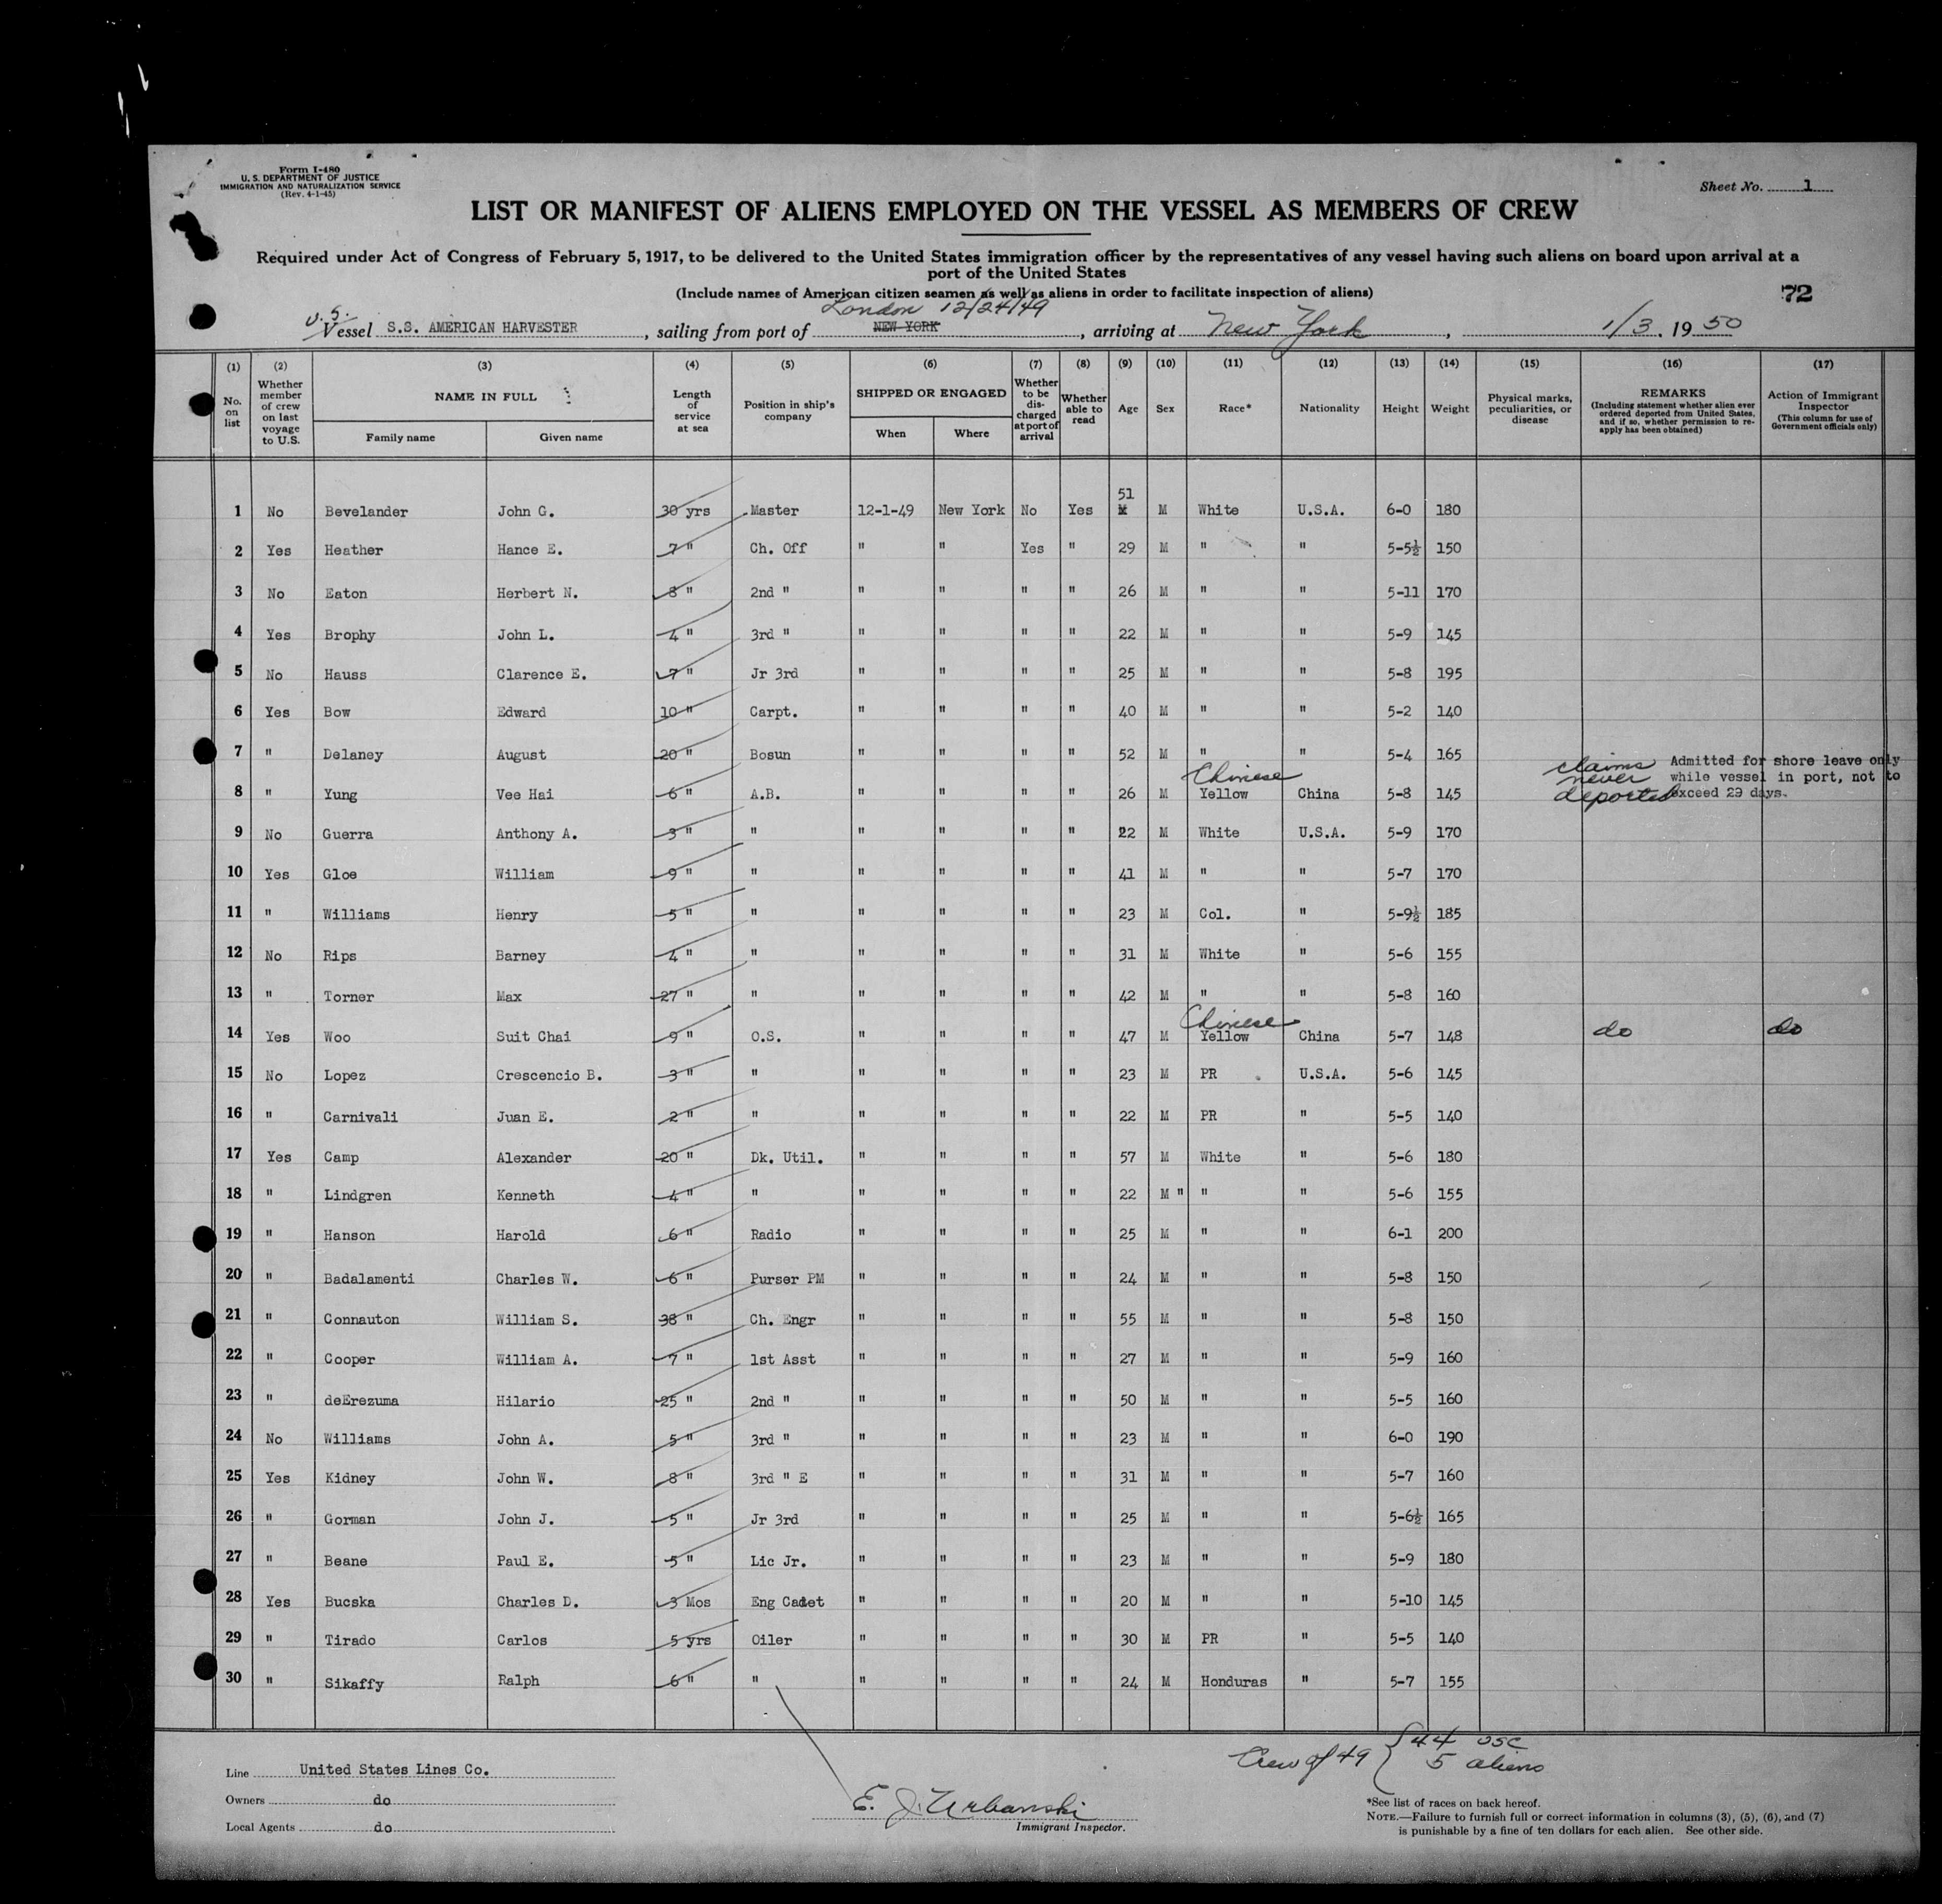 Form I-480
U. S. DEPARTMENT OF JUSTICE
IMMIGRATION AND NATURALIZATION SERVICE
(Rev. 4-1-45)
Sheet No. 1
LIST OR MANIFEST OF ALIENS EMPLOYED ON THE VESSEL AS MEMBERS OF CREW
Required under Act of Congress of February 5, 1917, to be delivered to the United States immigration officer by the representatives of any vessel having such aliens on board upon arrival at a
port of the United States
(Include names of American citizen seamen as well as aliens in order to facilitate inspection of aliens)
72
U.S. London 12/24/49
Vessel S.S. AMERICAN HARVESTER, sailing from port of NEW YORK, arriving at New York, 1/3, 1950
(1) (2) (3) (4) (5) (6) (7) (8) (9) (10) (11) (12) (13) (14) (15) (16) (17)
No. on list
Whether member of crew on last voyage to U.S.
NAME IN FULL
Family name Given name
Length of service at sea
Position in ship's company
SHIPPED OR ENGAGED
When Where
Whether to be discharged at port of arrival
Whether able to read
Age
Sex
Race*
Nationality
Height
Weight
Physical marks, peculiarities, or disease
REMARKS
(Including statement whether alien ever ordered deported from United States, and if so, whether permission to re-apply has been obtained)
Action of Immigrant Inspector
(This column for use of Government officials only)
51
1 No Bevelander John G. 30 yrs Master 12-1-49 New York No Yes M White U.S.A. 6-0 180
2 Yes Heather Hance E. 7 " Ch. Off " " Yes " 29 M " " 5-5½ 150
3 No Eaton Herbert N. 8 " 2nd " " " " " 26 M " " 5-11 170
4 Yes Brophy John L. 4 " 3rd " " " " " 22 M " " 5-9 145
5 No Hauss Clarence E. 7 " Jr 3rd " " " " 25 M " " 5-8 195
6 Yes Bow Edward 10 " Carpt. " " " " 40 M " " 5-2 140
7 " Delaney August 20 " Bosun " " " " 52 M " " 5-4 165
Chinese claims never deported Admitted for shore leave only while vessel in port, not to exceed 29 days.
8 " Yung Vee Hai 6 " A.B. " " " " 26 M Yellow China 5-8 145
9 No Guerra Anthony A. 3 " " " " " " 22 M White U.S.A. 5-9 170
10 Yes Gloe William 9 " " " " " " 41 M " " 5-7 170
11 " Williams Henry 5 " " " " " " 23 M Col. " 5-9½ 185
12 No Rips Barney 4 " " " " " " 31 M White " 5-6 155
13 " Torner Max 27 " " " " " " 42 M " " 5-8 160
Chinese
14 Yes Woo Suit Chai 9 " O.S. " " " " 47 M Yellow China 5-7 148 do do
15 No Lopez Crescencio B. 3 " " " " " " 23 M PR U.S.A. 5-6 145
16 " Carnivali Juan E. 2 " " " " " " 22 M PR " 5-5 140
17 Yes Camp Alexander 20 " Dk. Util. " " " " 57 M White " 5-6 180
18 " Lindgren Kenneth 4 " " " " " " 22 M " " " 5-6 155
19 " Hanson Harold 6 " Radio " " " " 25 M " " 6-1 200
20 " Badalamenti Charles W. 6 " Purser PM " " " " 24 M " " 5-8 150
21 " Connauton William S. 38 " Ch. Engr " " " " 55 M " " 5-8 150
22 " Cooper William A. 7 " 1st Asst " " " " 27 M " " 5-9 160
23 " deErezuma Hilario 25 " 2nd " " " " " 50 M " " 5-5 160
24 No Williams John A. 5 " 3rd " " " " " 23 M " " 6-0 190
25 Yes Kidney John W. 8 " 3rd " E " " " " 31 M " " 5-7 160
26 " Gorman John J. 5 " Jr 3rd " " " " 25 M " " 5-6½ 165
27 " Beane Paul E. 5 " Lic Jr. " " " " 23 M " " 5-9 180
28 Yes Bucska Charles D. 3 Mos Eng Cadet " " " " 20 M " " 5-10 145
29 " Tirado Carlos 5 yrs Oiler " " " " 30 M PR " 5-5 140
30 " Sikaffy Ralph 6 " " " " " " 24 M Honduras " 5-7 155
Crew of 49 { 44 USC
5 aliens
Line United States Lines Co.
Owners do
Local Agents do
E. J. Urbanski
Immigrant Inspector.
*See list of races on back hereof.
NOTE.—Failure to furnish full or correct information in columns (3), (5), (6), and (7)
is punishable by a fine of ten dollars for each alien. See other side.